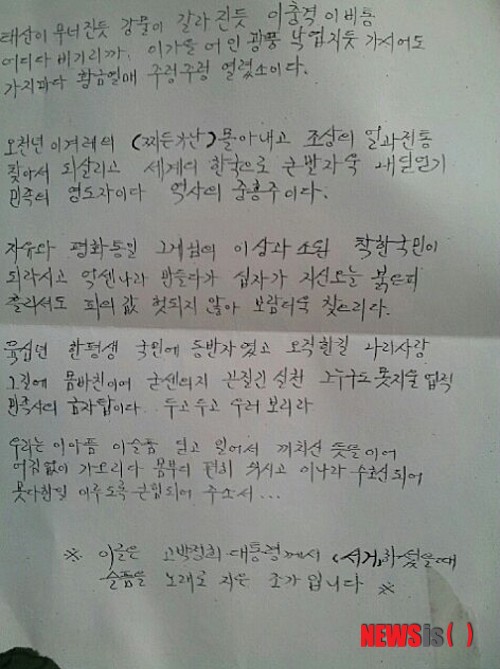 태산이 무너진듯 강물이 갈라 진듯 이충격 이비통
어디다 비기리까. 이가을어인 광풍 낙엽지듯 가시어도
가지마다 황금열매 주렁주렁 열렸소이다.
오천년 이겨레의 (찌든가난) 몰아내고 조상의 얼과전통
찾아서 되살리고 세계의 한국으로 큰발자욱 내딛었기
민족의 영도자이다 역사의 중흥주이다.
자유와 평화통일 그게님의 이상과 소원 착한국민이
되라시고 억센나라 만들다가 십자가 지신오늘 붉은피
흘리셔도 피의값 헛되지 않아 보람더욱 찾으리다.
육십년 한평생 국민에 동반자였고 오직한길 나라사랑
그길에 몸바친이여 굳센의지 끈질긴 실천 그누구도 못지울 업적
민족사의 금자탑이다. 두고두고 우러 보리라
우리는 이아픔 이슬픔 딛고 일어서 끼치신 뜻을이어
어김없이 가오리다 몸부디 편히 쉬시고 이나라 수호신되어
못다한일 이루도록 큰힘되어 주소서...
※ 이글은 고박정희 대통령께서 (서거)하셨을때
슬픔을 노래로 지은 조가 입니다 ※
NEWSis( )